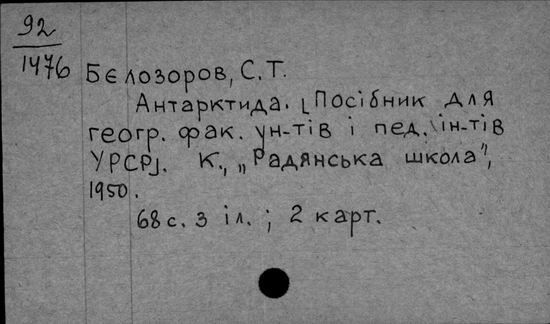 92
1476
Бєлозоров, С.Т.
Антарктида. [Посібник для
геогр. фак. ун-тів і пед. ін-тів
УРСР]. К., „Радянська школа",
1950.
68 с. з іл. ; 2 карт.